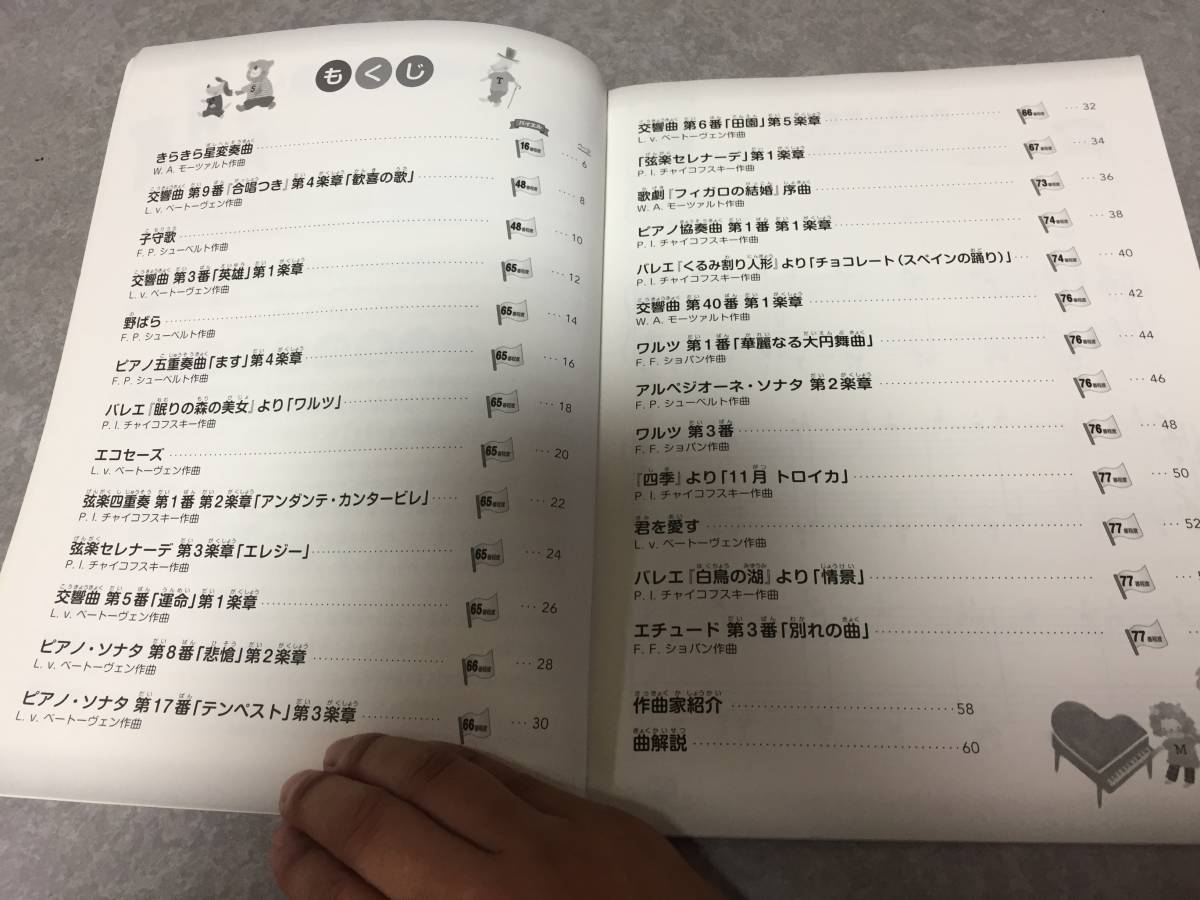 もくじ
バイエル
きらきら星変奏曲 16番程度 6
W. A. モーツァルト作曲
交響曲 第9番『合唱つき』第4楽章「歓喜の歌」 48番程度 8
L. v. ベートーヴェン作曲
子守歌 48番程度 10
F. P. シューベルト作曲
交響曲 第3番「英雄」第1楽章 65番程度 12
L. v. ベートーヴェン作曲
野ばら 65番程度 14
F. P. シューベルト作曲
ピアノ五重奏曲「ます」第4楽章 65番程度 16
F. P. シューベルト作曲
バレエ『眠りの森の美女』より「ワルツ」 65番程度 18
P. I. チャイコフスキー作曲
エコセーズ 65番程度 20
L. v. ベートーヴェン作曲
弦楽四重奏 第1番 第2楽章「アンダンテ・カンタービレ」 65番程度 22
P. I. チャイコフスキー作曲
弦楽セレナーデ 第3楽章「エレジー」 65番程度 24
P. I. チャイコフスキー作曲
交響曲 第5番「運命」第1楽章 65番程度 26
L. v. ベートーヴェン作曲
ピアノ・ソナタ 第8番「悲愴」第2楽章 66番程度 28
L. v. ベートーヴェン作曲
ピアノ・ソナタ 第17番「テンペスト」第3楽章 66番程度 30
L. v. ベートーヴェン作曲
交響曲 第6番「田園」第5楽章 66番程度 32
L. v. ベートーヴェン作曲
「弦楽セレナーデ」第1楽章 67番程度 34
P. I. チャイコフスキー作曲
歌劇『フィガロの結婚』序曲 73番程度 36
W. A. モーツァルト作曲
ピアノ協奏曲 第1番 第1楽章 74番程度 38
P. I. チャイコフスキー作曲
バレエ『くるみ割り人形』より「チョコレート(スペインの踊り)」 74番程度 40
P. I. チャイコフスキー作曲
交響曲 第40番 第1楽章 76番程度 42
W. A. モーツァルト作曲
ワルツ 第1番「華麗なる大円舞曲」 76番程度 44
F. F. ショパン作曲
アルペジオーネ・ソナタ 第2楽章 76番程度 46
F. P. シューベルト作曲
ワルツ 第3番 76番程度 48
F. F. ショパン作曲
『四季』より「11月 トロイカ」 77番程度 50
P. I. チャイコフスキー作曲
君を愛す 77番程度 52
L. v. ベートーヴェン作曲
バレエ『白鳥の湖』より「情景」 77番程度
P. I. チャイコフスキー作曲
エチュード 第3番「別れの曲」 77番程度
F. F. ショパン作曲
作曲家紹介 58
曲解説 60
S
T
M